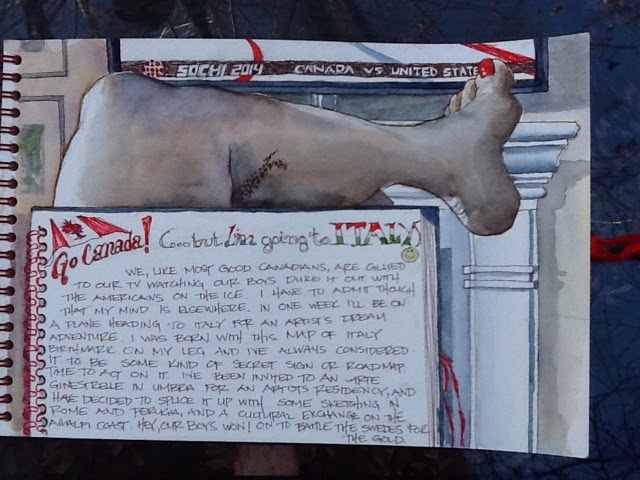 SOCHI 2014 CANADA VS UNITED STATE
Go Canada! (...but I'm going to ITALY
WE, LIKE MOST GOOD CANADIANS, ARE GLUED
TO OUR TV WATCHING OUR BOYS DUKE IT OUT WITH
THE AMERICANS ON THE ICE. I HAVE TO ADMIT THOUGH
THAT MY MIND IS ELSEWHERE. IN ONE WEEK I'LL BE ON
A PLANE HEADING TO ITALY FOR AN ARTIST'S DREAM
ADVENTURE. I WAS BORN WITH THIS MAP OF ITALY
BIRTHMARK ON MY LEG AND I'VE ALWAYS CONSIDERED
IT TO BE SOME KIND OF SECRET SIGN OR ROADMAP.
TIME TO ACT ON IT. I'VE BEEN INVITED TO AN ARTE
GINESTRELLE IN UMBRIA FOR AN ARTISTS RESIDENCY, AND
HAVE DECIDED TO SPLICE IT UP WITH SOME SKETCHING IN
ROME AND PERUGIA, AND A CULTURAL EXCHANGE ON THE
AMALFI COAST. HEY, OUR BOYS WON! ON TO BATTLE THE SWEDES FOR
THE GOLD.